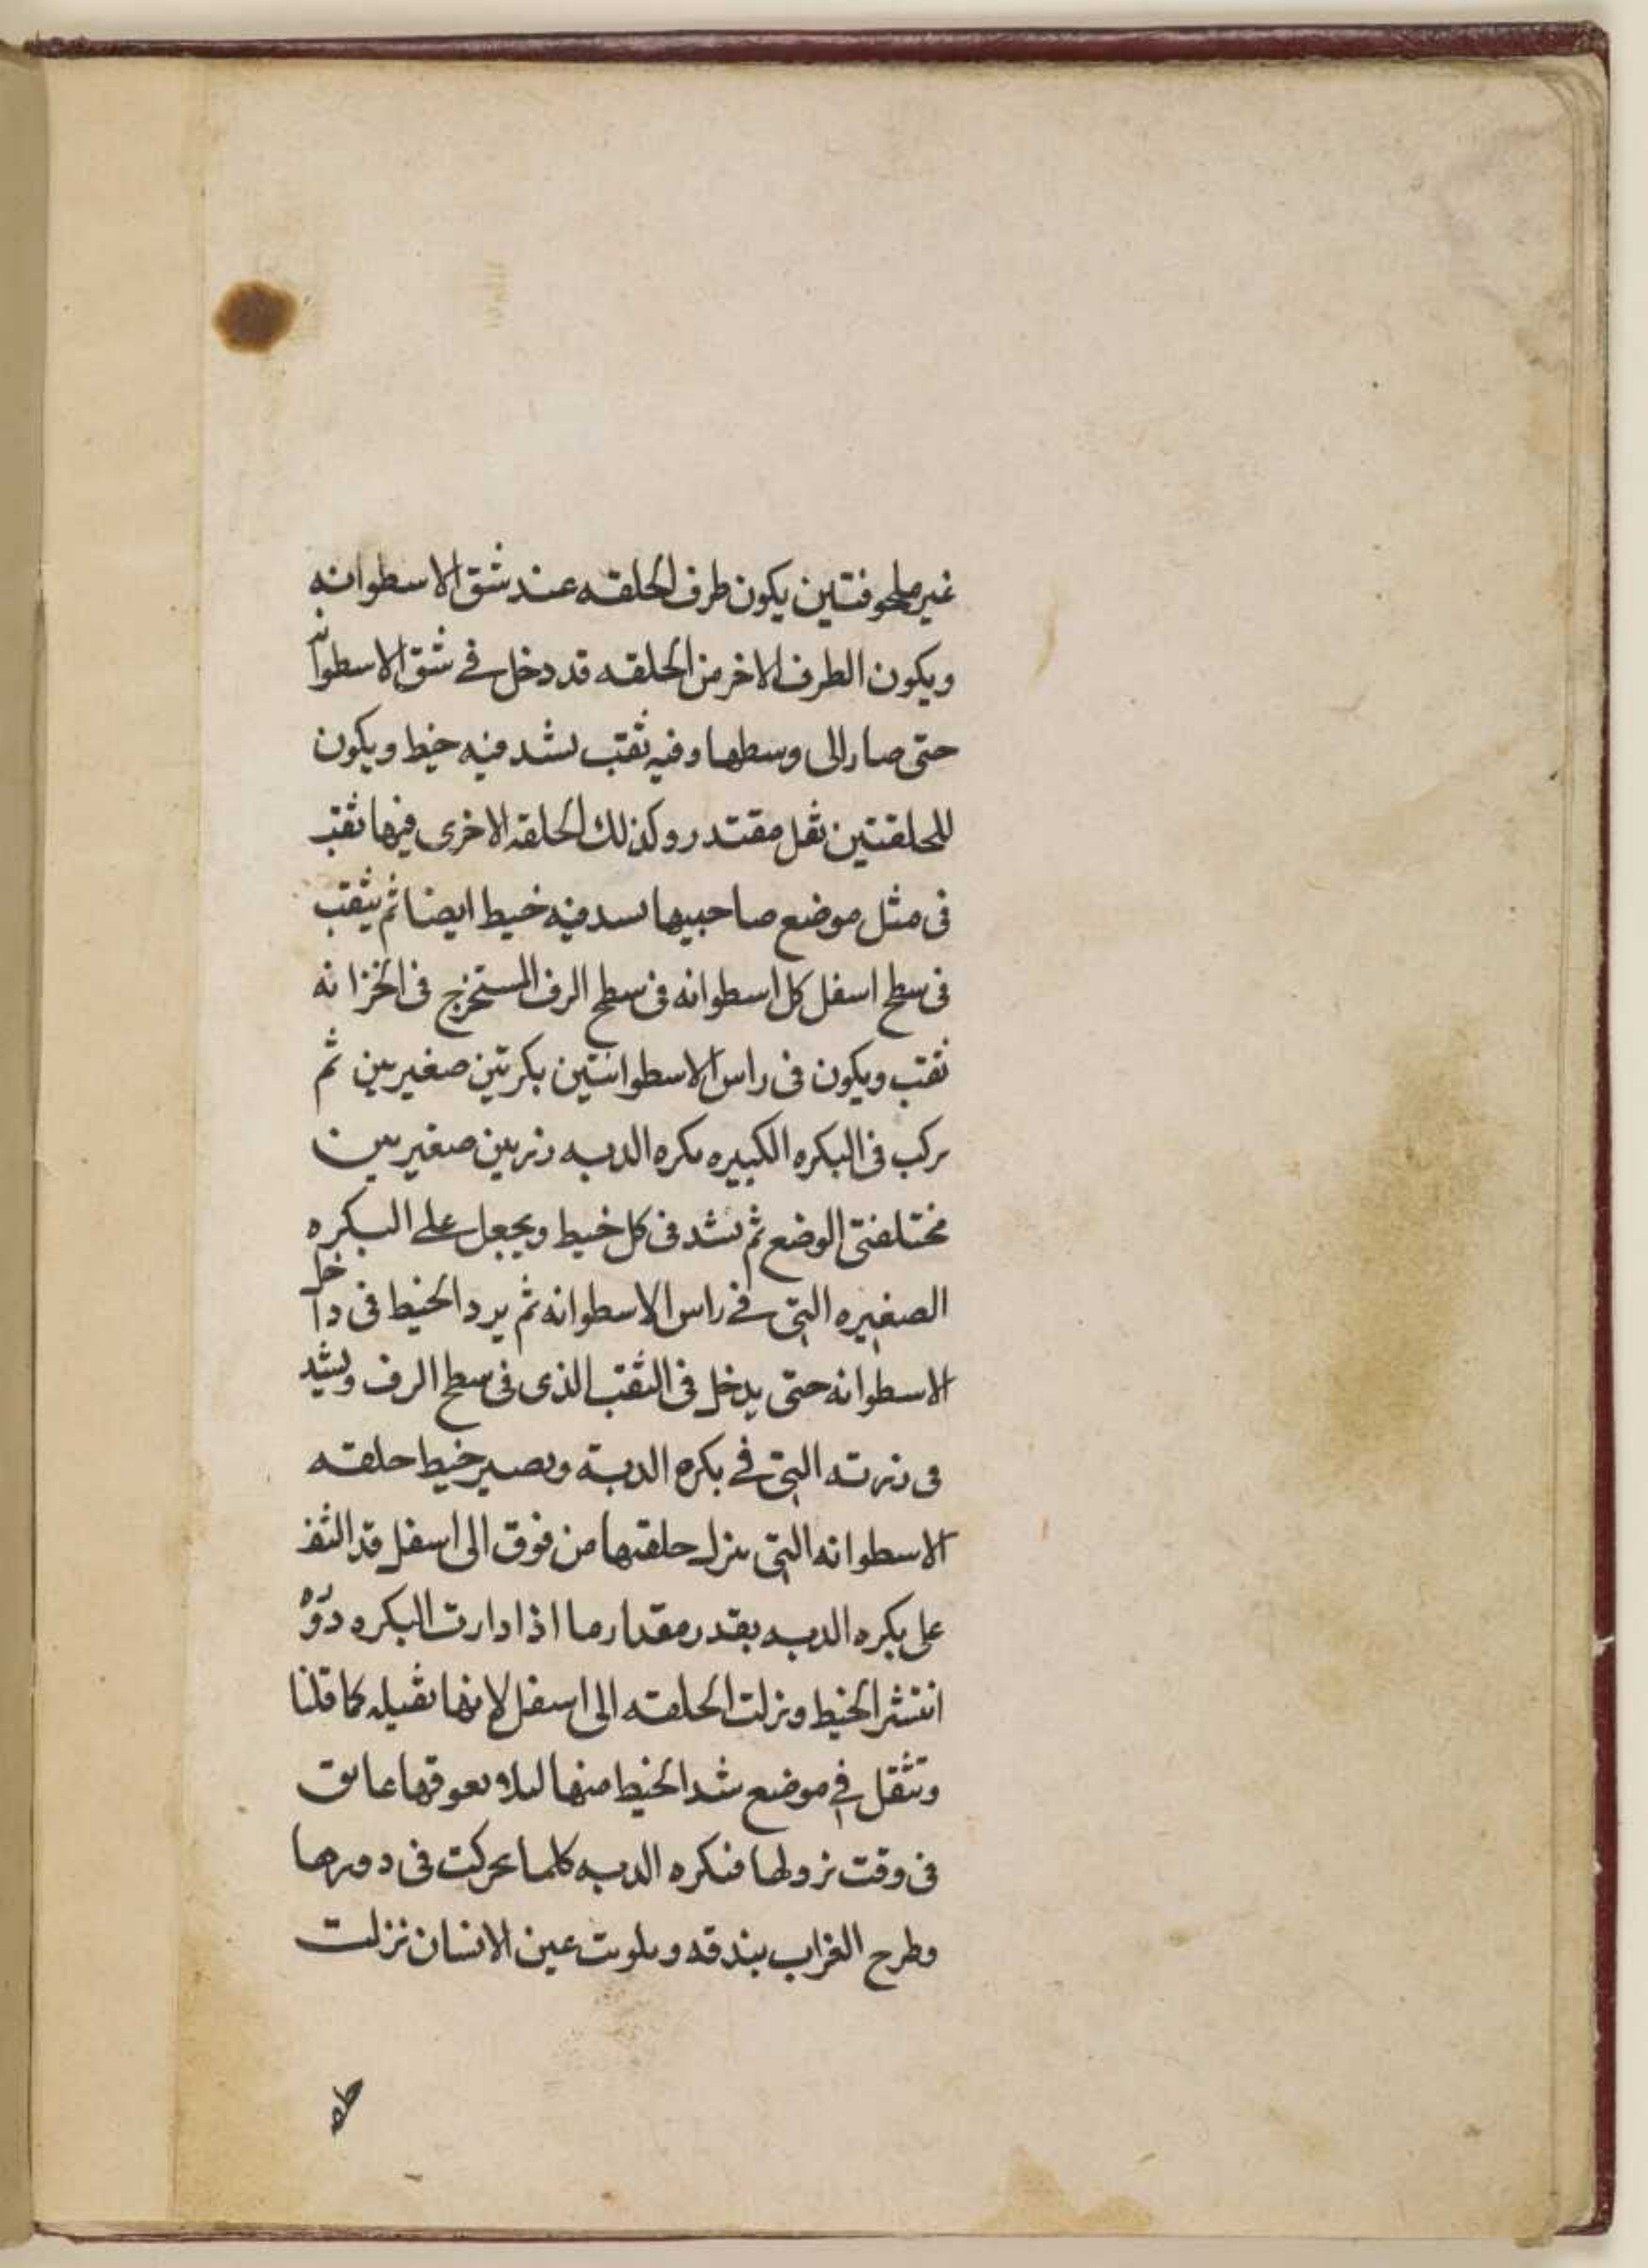 غير ملحوفتين يكون طرف الحلقه عند شق الاسطوانه
ويكون الطرف الاخر من الحلقه قد دخل في شق الاسطوانه
حتى صار الى وسطها وفيه ثقب يشد فيه خيط ويكون
للحلقتين ثقل مقتدر وكذلك الحلقه الاخرى فيها ثقب
فى مثل موضع صاحبيها يسد فيه خيط ايضا ثم يثقب
فى سطح اسفل كل اسطوانه فى سطح الرف المستخرج فى الخزانه
ثقب ويكون فى راس الاسطوانتين بكرتين صغيرتين ثم
يركب فى البكره الكبيره بكره الدبه زرتين صغيرتين
مختلفتى الوضع ثم يشد فى كل خيط ويجعل على البكره
الصغيره التى في راس الاسطوانه ثم يرد الخيط فى داخل
الاسطوانه حتى يدخل فى الثقب الذى فى سطح الرف ويشد
فى زرته التى في بكره الدبة ويصير خيط حلقه
الاسطوانه التى ينزل حلقتها من فوق الى اسفل قد التف
على بكره الدبه بقدر مقدار ما اذا دارت البكره دوره
انتشر الخيط ونزلت الحلقه الى اسفل لانها ثقيله كما قلنا
وتثقل في موضع شد الخيط منها ليلا يعوقها عايق
فى وقت نزولها فبكره الدبه كلما تحركت فى دورها
وطرح الغراب بندقه وتلونت عين الانسان نزلت